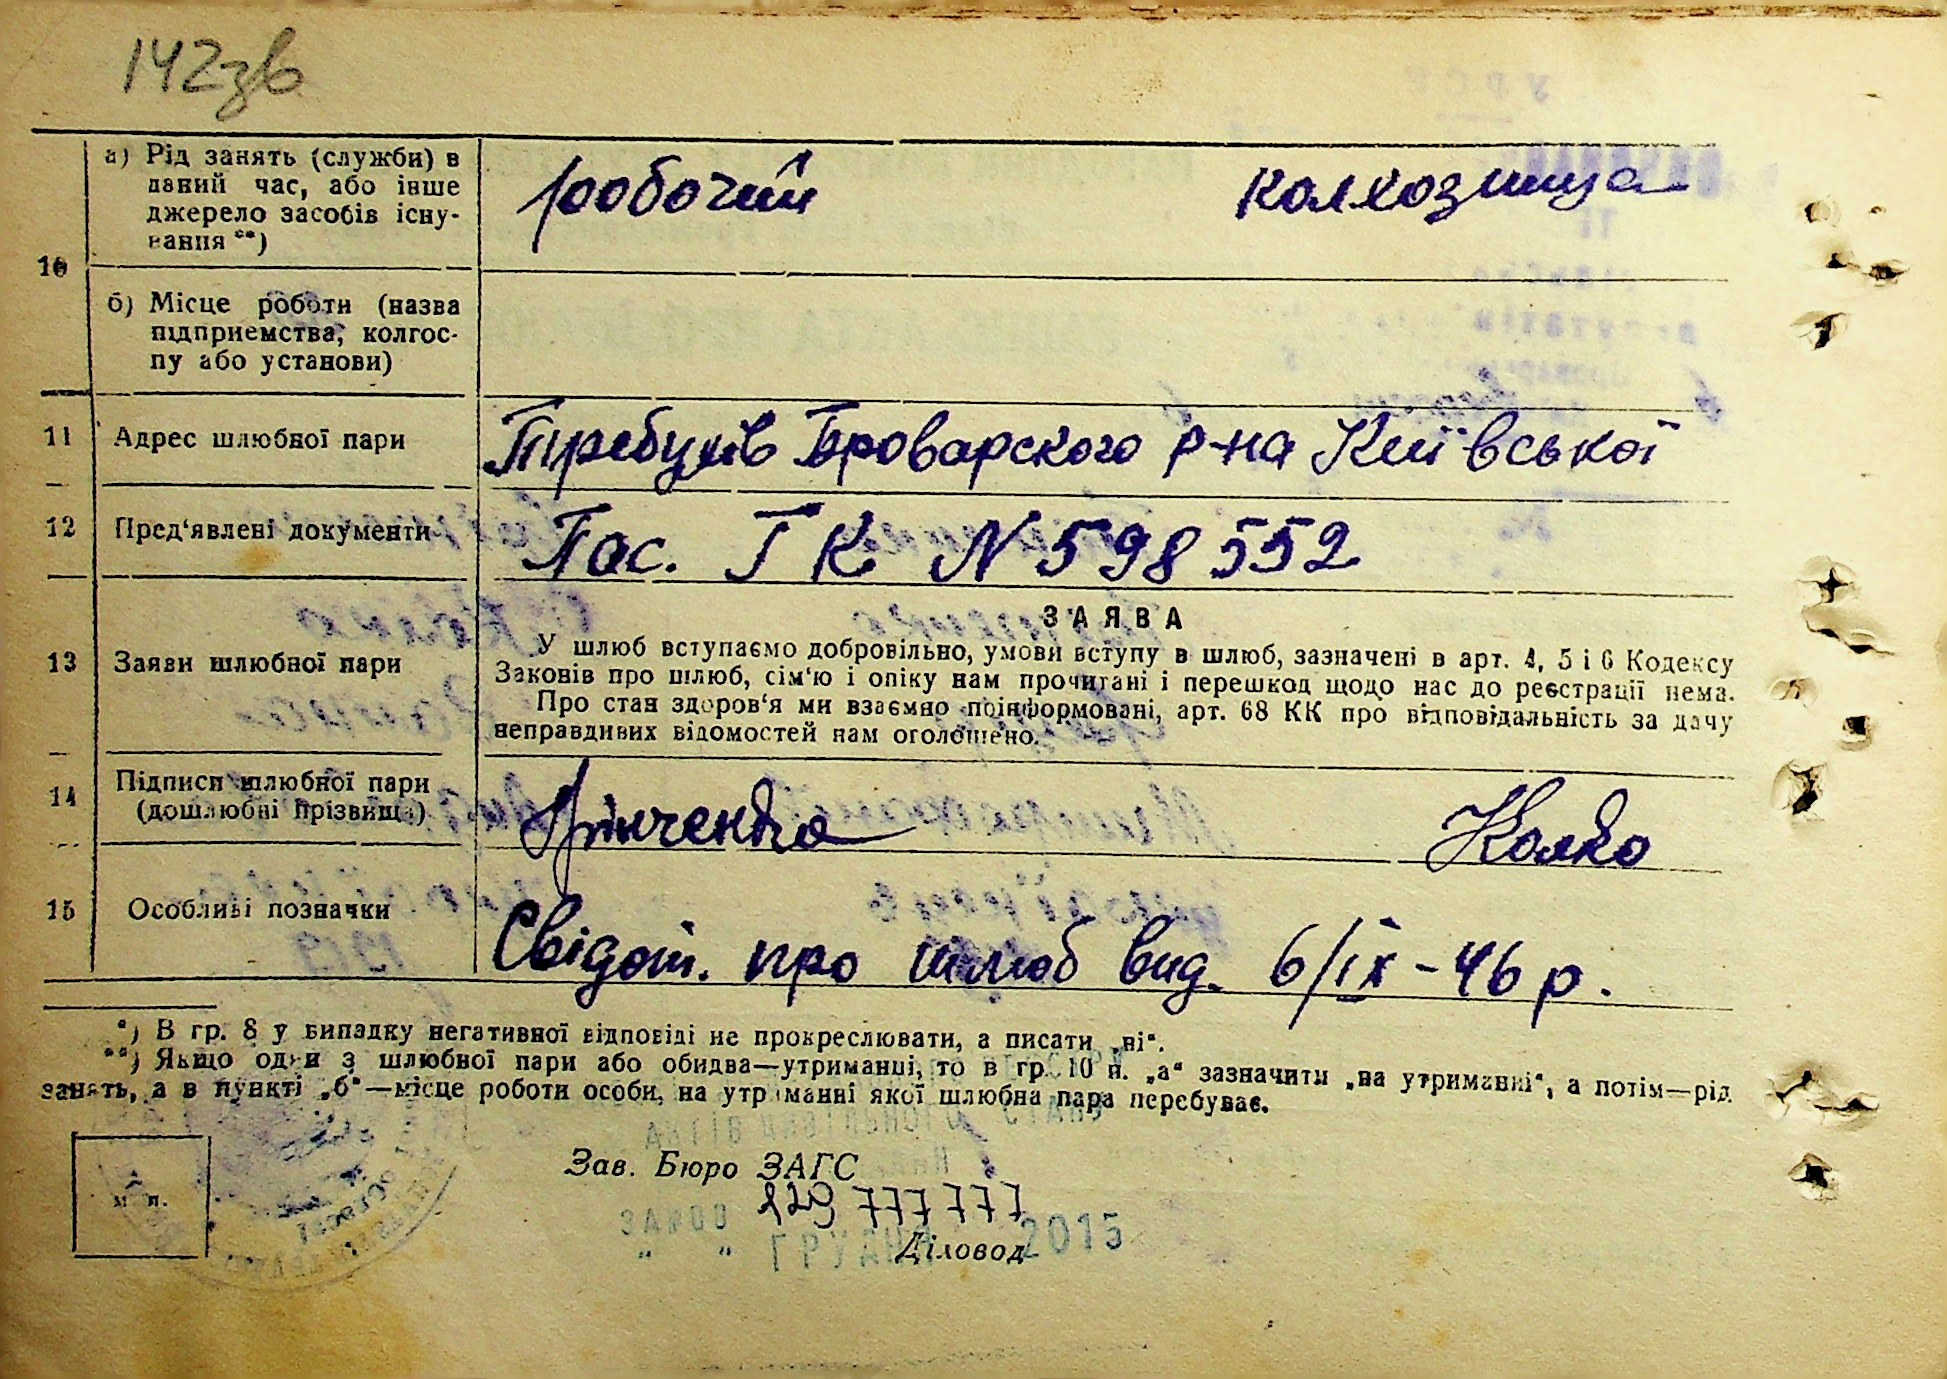 142зв
10
а) Рід занять (служби) в
даний час, або інше
джерело засобів існу-
вання **)
робочий колхозница
б) Місце роботи (назва
підприємства, колгос-
пу або установи)
11 Адрес шлюбної пари Требухів Броварского р-на Київської
12 Пред'явлені документи Пас. ГК N 598552
13 Заяви шлюбної пари
ЗАЯВА
У шлюб вступаємо добровільно, умови вступу в шлюб, зазначені в арт. 4, 5 і 6 Кодексу
Законів про шлюб, сім'ю і опіку нам прочитані і перешкод щодо нас до реєстрації нема.
Про стан здоров'я ми взаємно поінформовані, арт. 68 КК про відповідальність за дачу
неправдивих відомостей нам оголошено.
14 Підписи шлюбної пари
(дошлюбні прізвища)
Грінченко Колко
15 Особливі позначки Свідот. про шлюб вид. 6/ІХ-46 р.
*) В гр. 8 у випадку негативної відповіді не прокреслювати, а писати „ні“.
**) Якщо один з шлюбної пари або обидва—утриманці, то в гр. 10 п. „а“ зазначити „на утриманні“, а потім—рід
занять, а в пункті „б“—місце роботи особи, на утриманні якої шлюбна пара перебуває.
АКТІВ ЦИВІЛЬНОГО СТАНУ
м. п.
Зав. Бюро ЗАГС
777 777
" " ГРУДНЯ 2015
Діловод